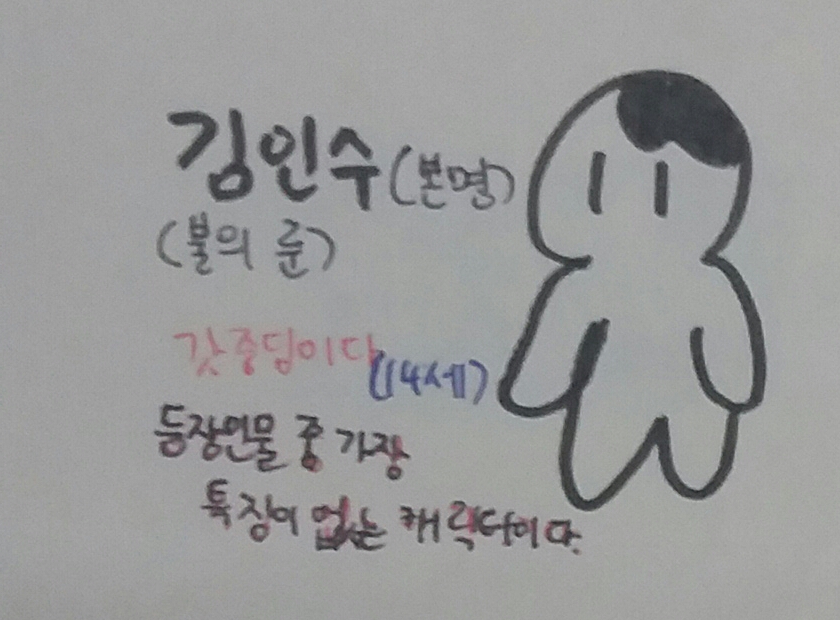 김인수(본명)
(불의 룬)
갓중딩이다(14세)
등장인물 중 가장
특징이 없는 캐릭터이다.